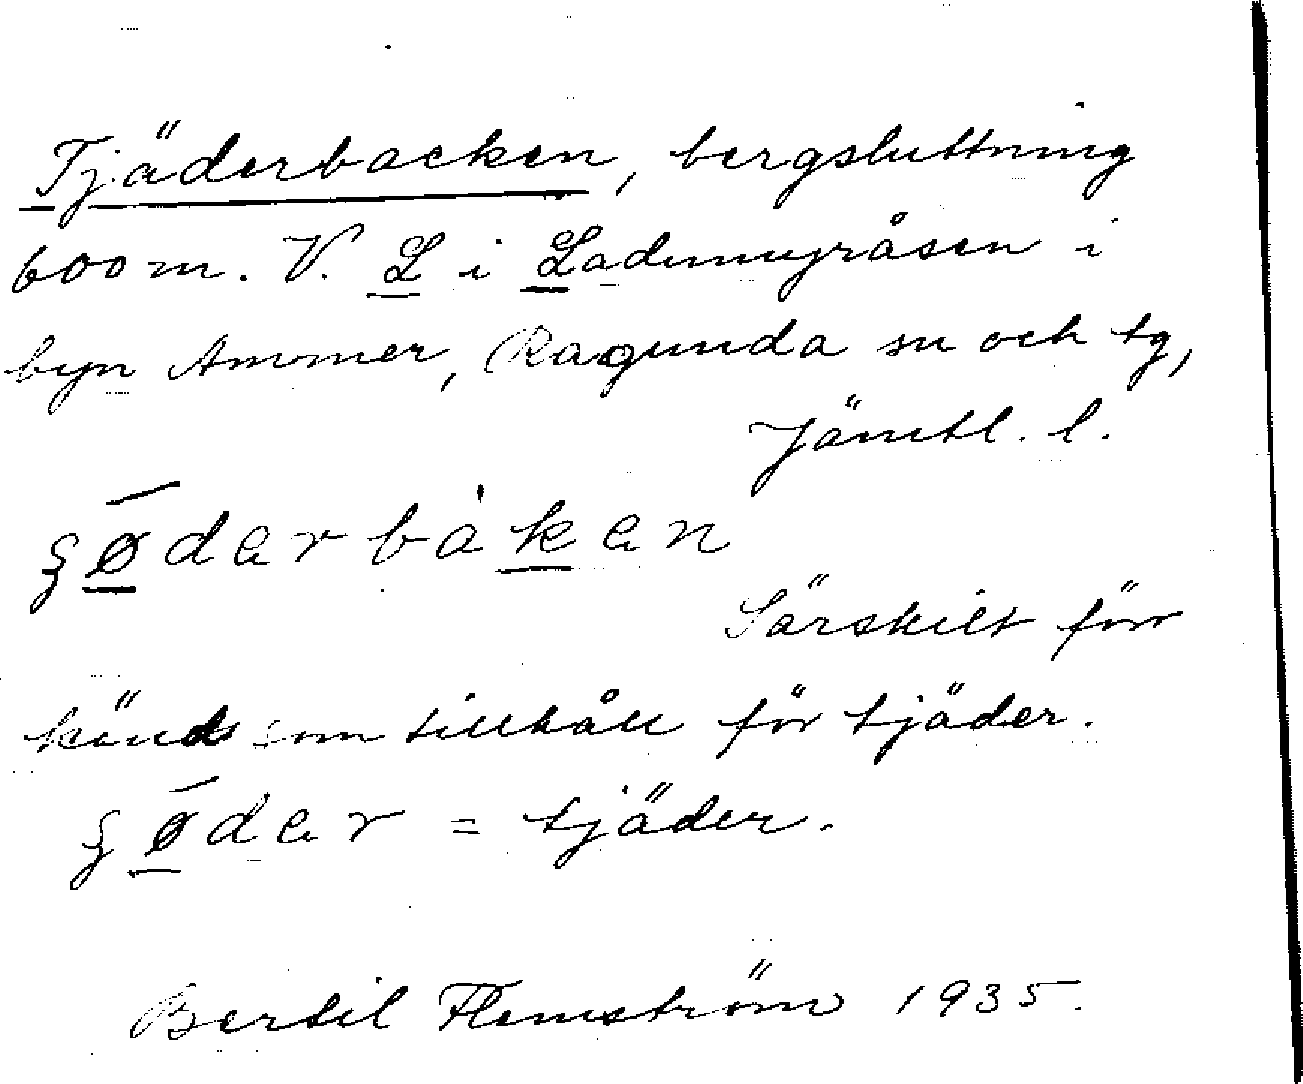 Tjäderbacken, bergsluttning
600 m. V. L i Lademyråsen i
byn Ammer, Ragunda sn och tg,
Jämtl. l.
ʂø̄dervbàken
Särskilt förr
känd som tillhåll för tjäder.
ʂø̄der = tjäder.
Bertil Flemström 1935.